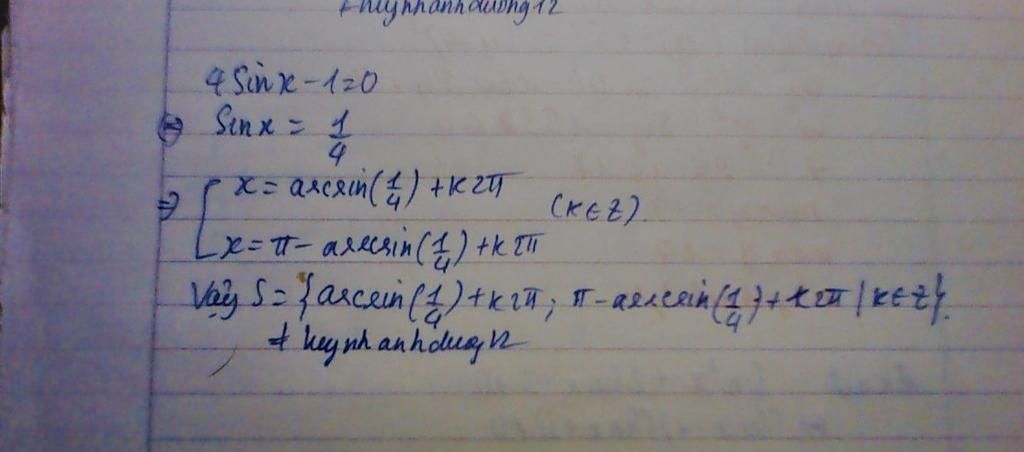 + huynhanhduong12
4 Sin x - 1 = 0
⇔ Sin x = 1/4
⇒ [ x = arcsin(1/4) + k2π
x = π - arcsin(1/4) + k2π (k ∈ Z).
Vậy S = {arcsin(1/4) + k2π; π - arcsin(1/4) + k2π | k ∈ Z}.
+ huynhanhduong12